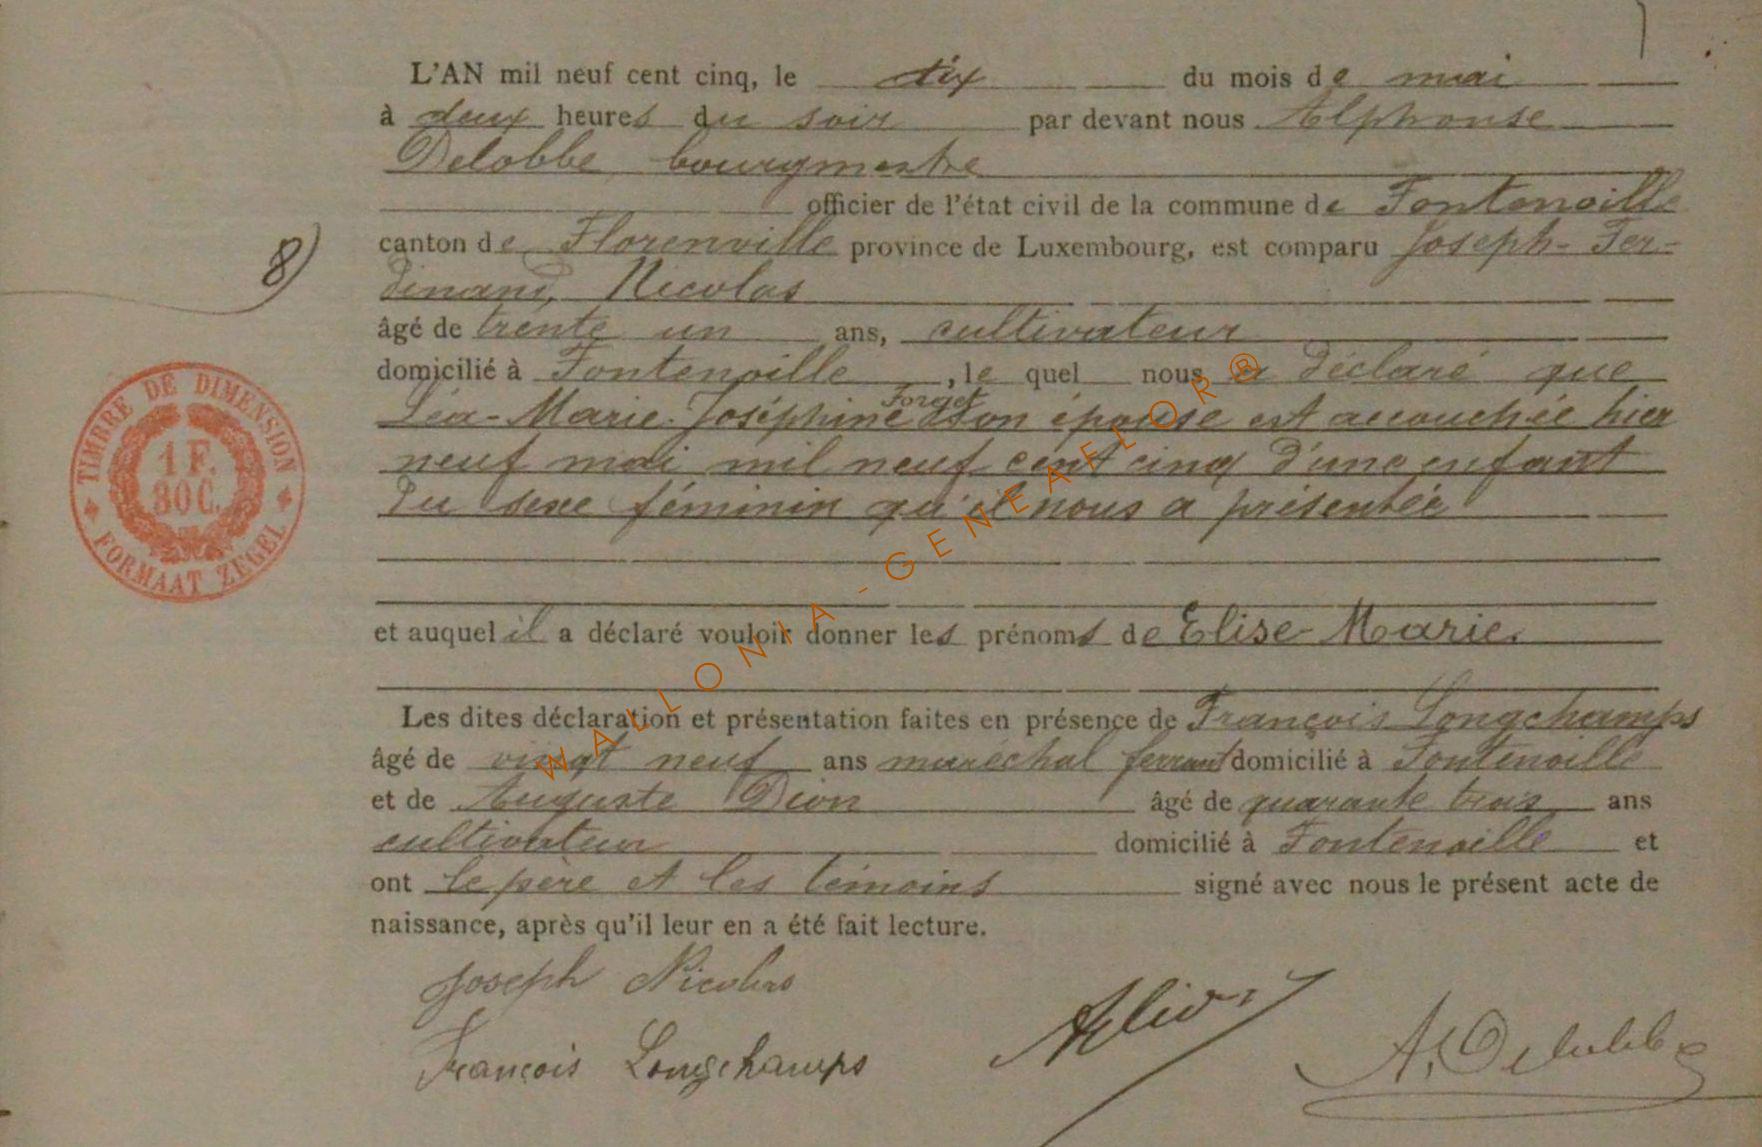 L'AN mil neuf cent cinq, le dix du mois de mai
à deux heures du soir par devant nous Alphonse
Delobbe bourgmestre
officier de l'état civil de la commune de Fontenoille
8) canton de Florenville province de Luxembourg, est comparu Joseph-Fer-
dinand, Nicolas
âgé de trente un ans, cultivateur
domicilié à Fontenoille, le quel nous a déclaré que
Forget
Léa-Marie-Joséphine son épouse est accouchée hier
neuf mai mil neuf cent cinq d'une enfant
du sexe féminin qu'il nous a présentée
et auquel il a déclaré vouloir donner les prénoms de Elise-Marie.
Les dites déclaration et présentation faites en présence de François Longchamps
âgé de vingt neuf ans maréchal ferrant domicilié à Fontenoille
et de Auguste Dion âgé de quarante trois ans
cultivateur domicilié à Fontenoille et
ont le père et les témoins signé avec nous le présent acte de
naissance, après qu'il leur en a été fait lecture.
Joseph Nicolas
François Longchamps
A. Delobbe
TIMBRE DE DIMENSION
1 F.
80 C.
FORMAAT ZEGEL
WALLONIA-GENEAFLOR®